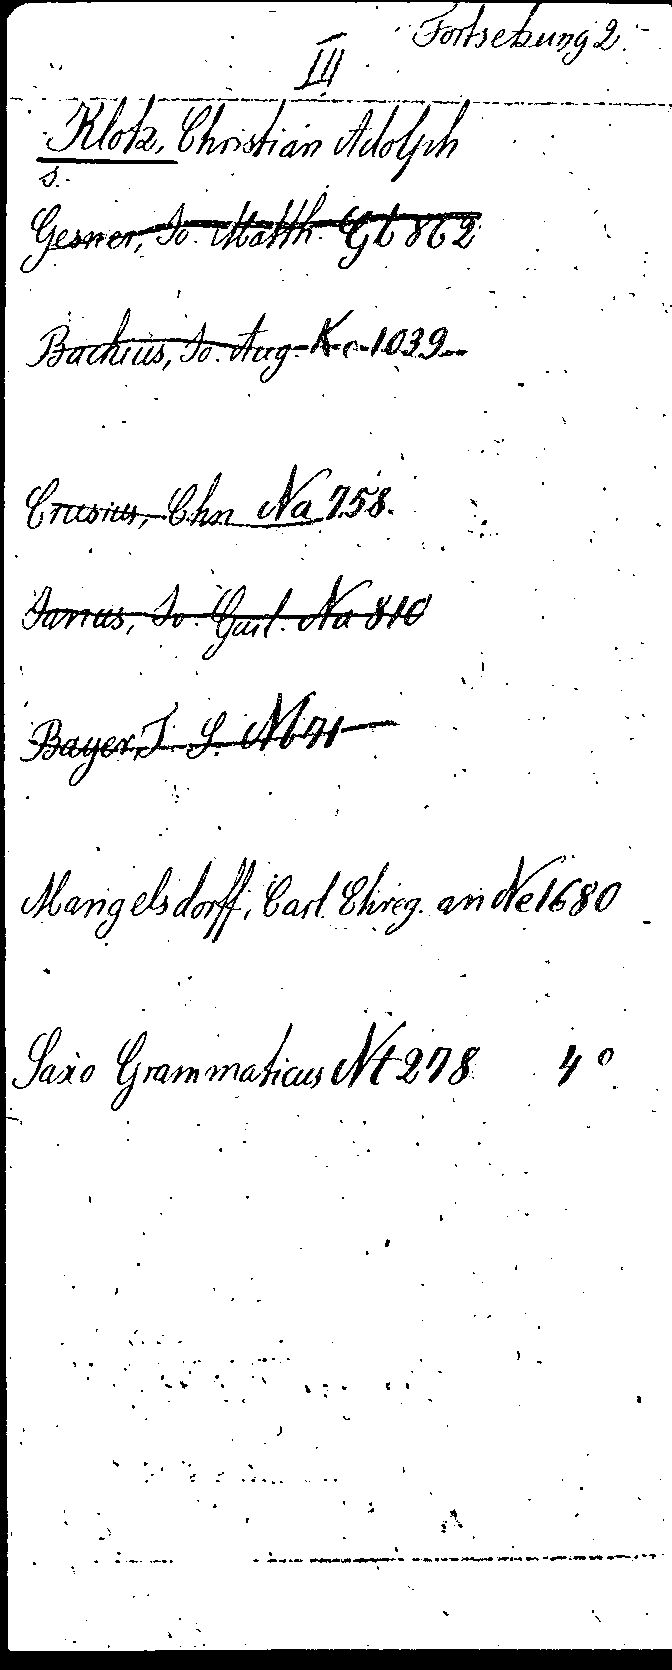 Fortsetzung 2.
III
Klotz, Christian Adolph
s.
Gesner, Io. Matth. Gb 862
Bachius, Io. Aug. Kc 1039
Crusius, Chn Na 758.
Ianus, Io. Guil. Na 810
Bayer, T. S. Nb 71
Mangelsdorff, Carl Ehreg. an Ne 1680
Saxo Grammaticus Nt 278 4°